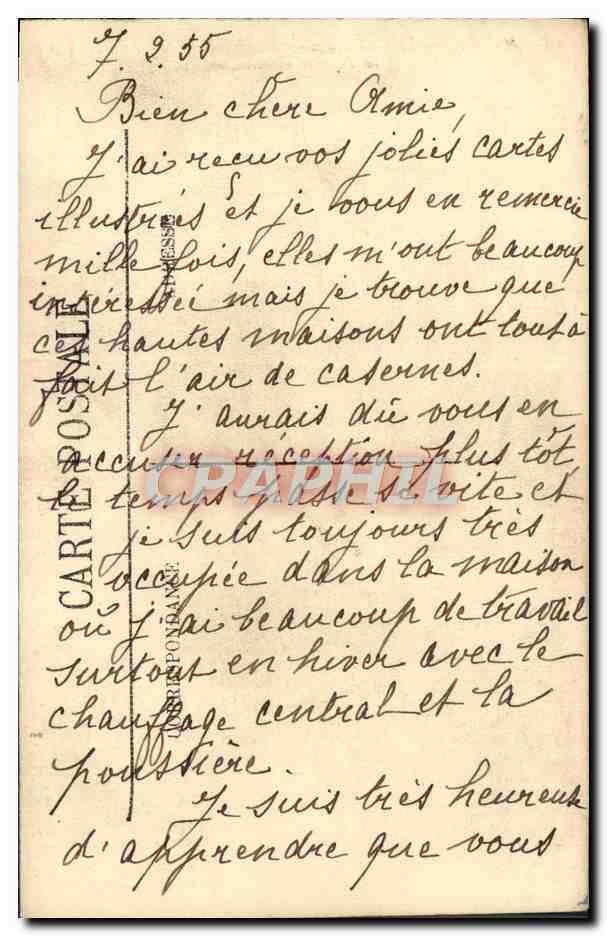 7. 2. 55
Bien chère Amie,
J'ai reçu vos jolies cartes
illustrées et je vous en remercie
mille fois, elles m'ont beaucoup
intéressée mais je trouve que
ces hautes maisons ont tout à
fait l'air de casernes.
J'aurais dû vous en
accuser réception plus tôt,
le temps passe si vite et
je suis toujours très
occupée dans la maison
où j'ai beaucoup de travail
surtout en hiver avec le
chauffage central et la
poussière.
Je suis très heureuse
d'apprendre que vous
CARTE POSTALE
CORRESPONDANCE
ADRESSE
CPAPHIL